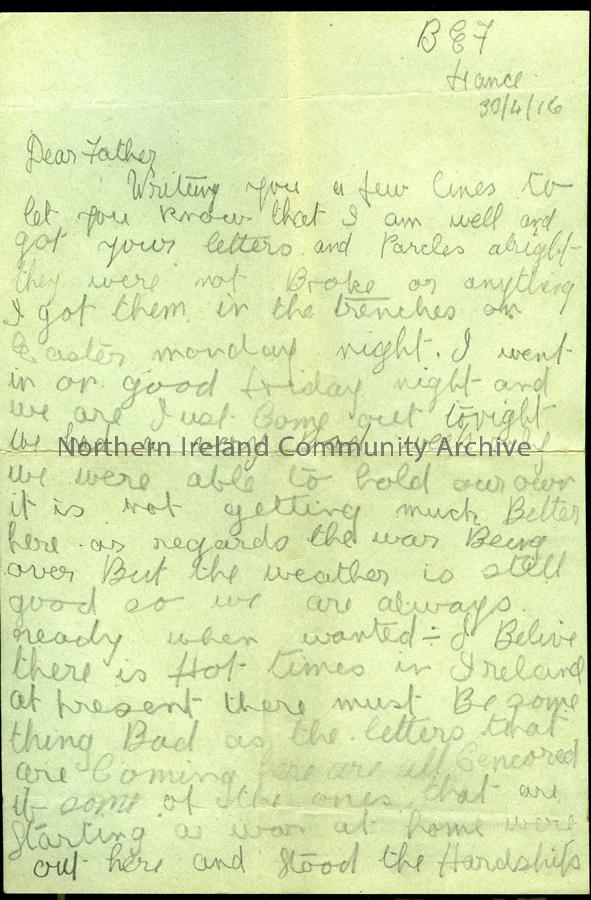 B E F
France.
30/4/16
Dear Father
Writing you a few lines to
let you know that I am well and
got your letters and Parcles alright
they were not Broke or anything
I got them in the trenches on
Easter monday night. I went
in on good Friday night and
we are Just Come out tonight
we had a very
Northern Ireland Community Archive
we were able to hold our own
it is not getting much Better
here as regards the war Being
over But the weather is still
good so we are always
ready when wanted = I Belive
there is Hot times in Ireland
at present there must Be some
thing Bad as the letters that
are Coming here are all Cencored
if some of the ones that are
Starting a war at home were
out here and Stood the Hardships